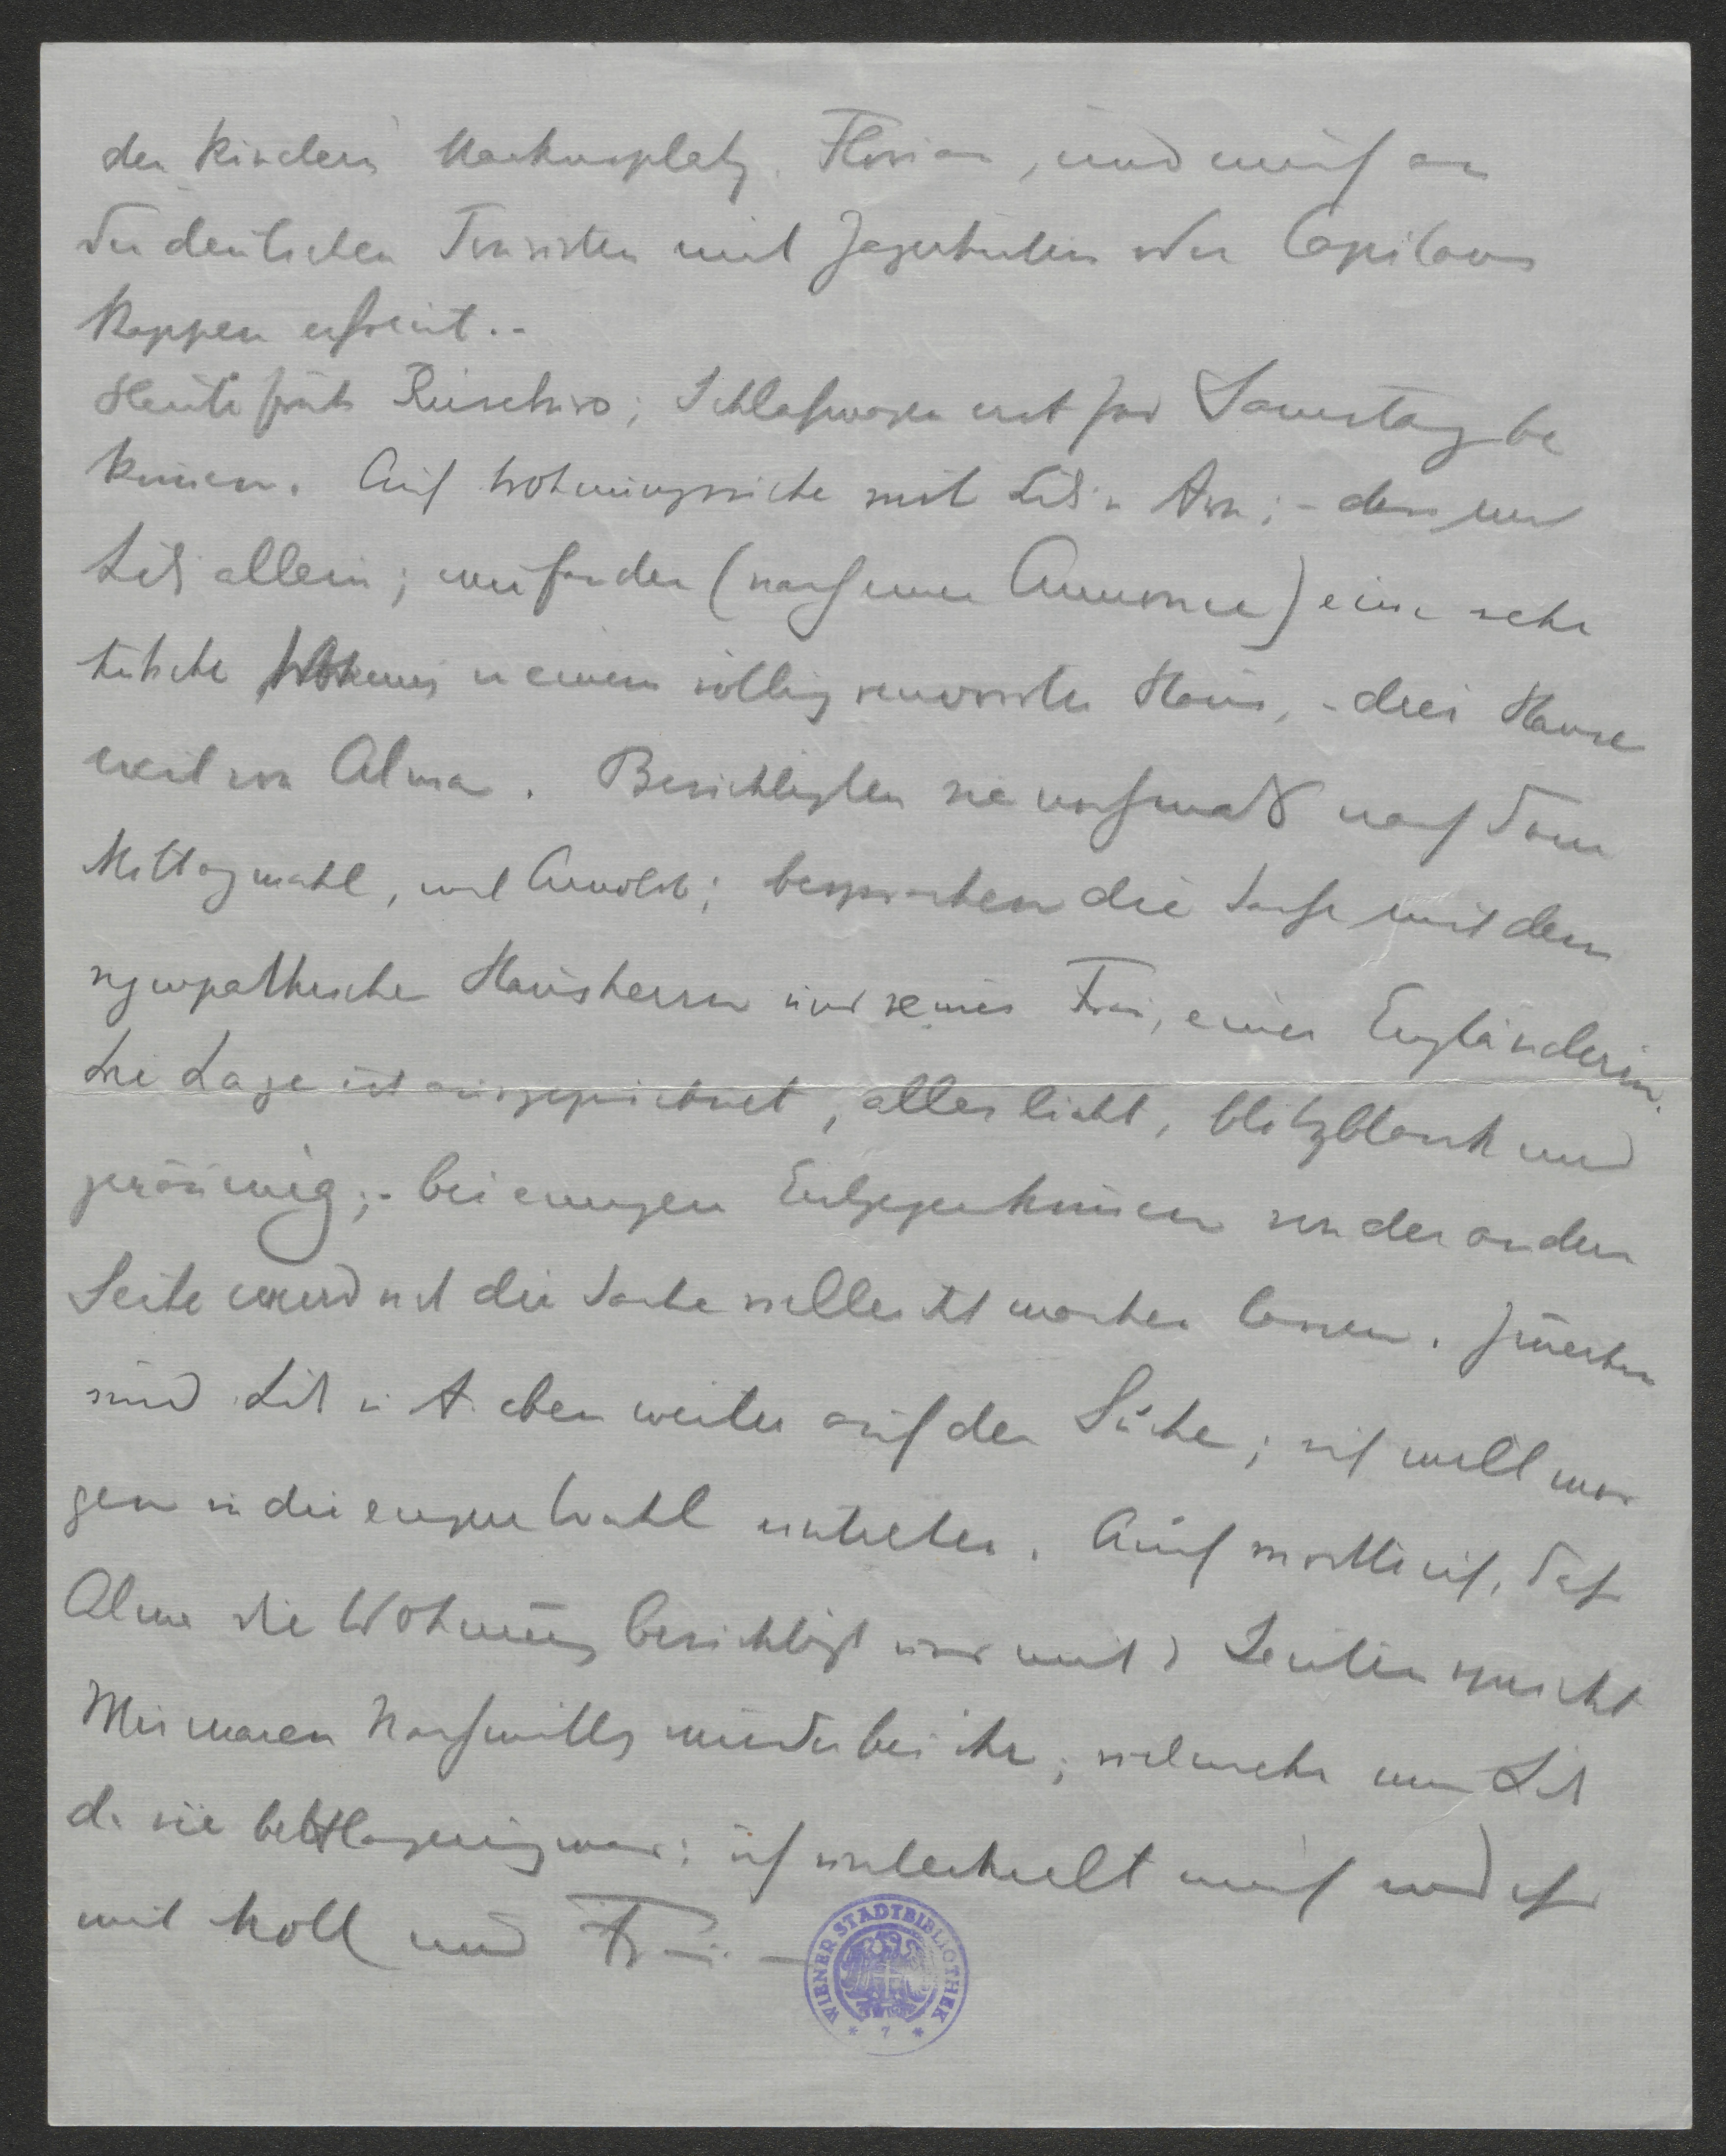 den Kindern Markusplatz, Florian, und mich an
den deutschen Touristen mit Jägerhüten oder Capitäns
kappen erfreut. -
Heute früh Reisebüro; Schlafwagen erst für Samstag be
kommen. Auf Wohnungssuche mit Lili u Arn; - dann nur
Lili allein; wir fanden (nach einer Annonce) eine sehr
hübsche Wohnung in einem völlig renovirten Haus, - drei Häuser
weit von Alma. Besichtigten sie nochmals nach dem
Mittagmahl, mit Arnoldo; besprachen die Sache mit dem
sympathischen Hausherrn und seiner Frau, einer Engländerin.
Die Lage ist ausgezeichnet, alles licht, blitzblank und
geräumig; - bei einigem Entgegenkommen von der andern
Seite wird sich die Sache vielleicht machen lassen. Inzwischen
sind Lili u A. eben weiter auf der Suche; ich will mor
gen in die engere Wahl eintreten. Auch möchte ich, daß
Alma die Wohnung besichtigt und mit d Leuten spricht
Wir waren Nachmittg wieder bei ihr; vielmehr nur Lili
da sie bettlägerig war; ich unterhielt mich unten
mit Moll und Frau. -
WIENER STADTBIBLIOTHEK
* 7 *